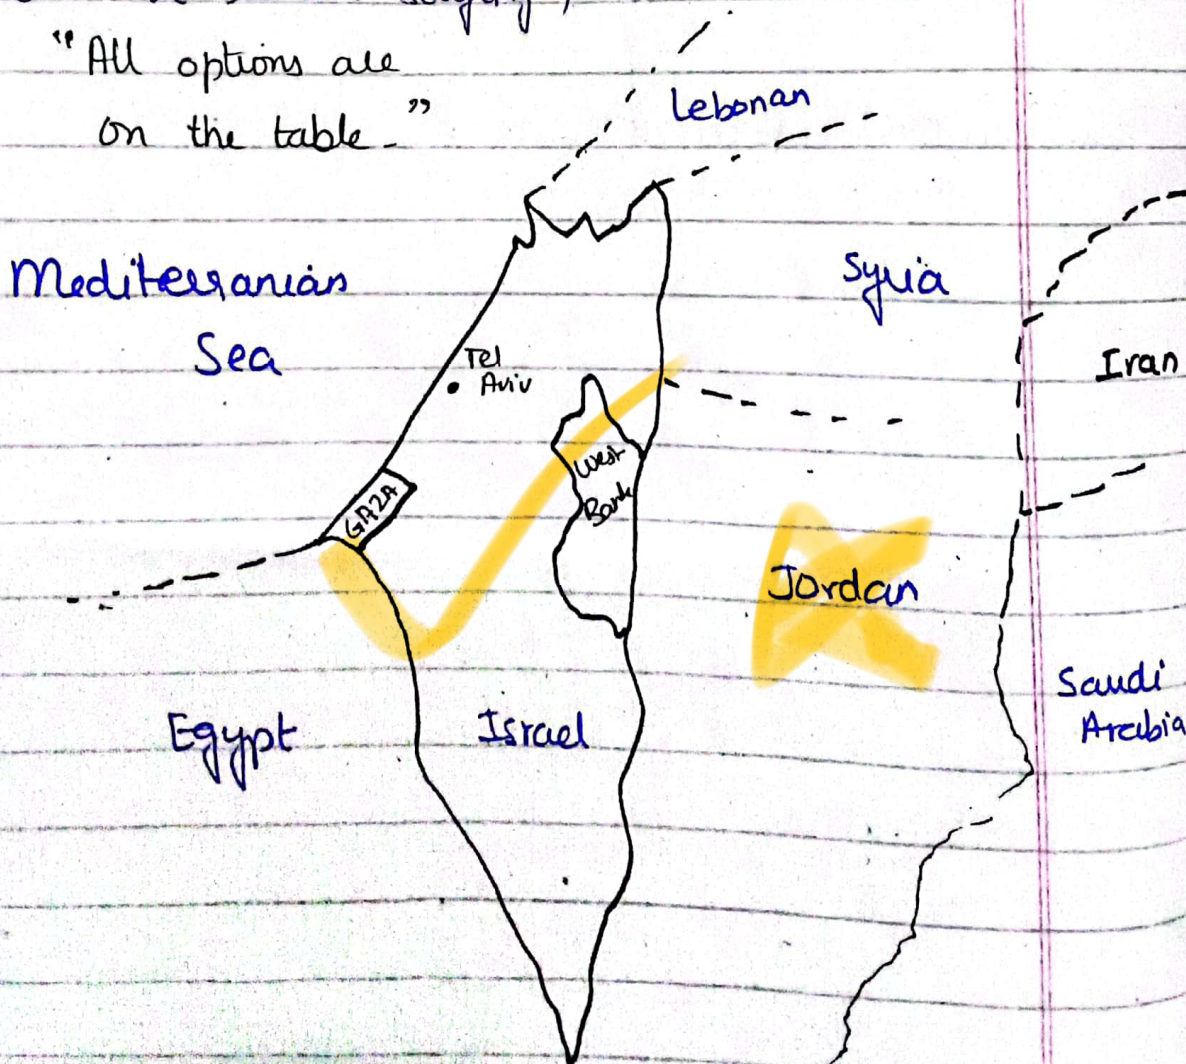 "All options are
on the table-"
Lebonan
Mediterranian
Sea
Syria
Tel
Aviv
Iran
West
Bank
GAZA
Jordan
Saudi
Arabia
Egypt
Israel